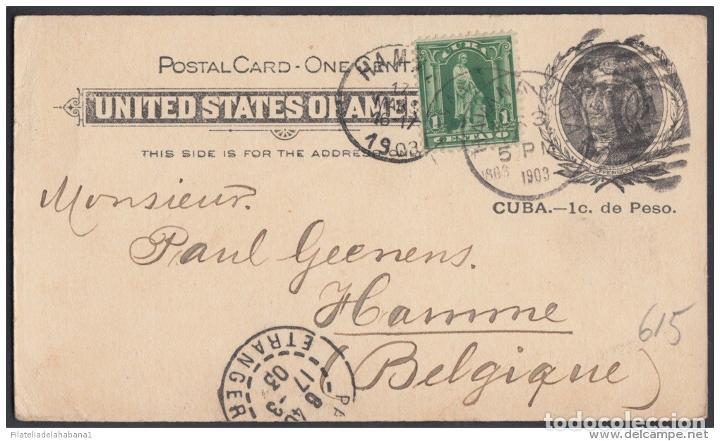 POSTAL CARD - ONE CENT.
UNITED STATES OF AM
THIS SIDE IS FOR THE ADDRESS ONLY
HAM
1903
CUBA
1 1
CENTAVO
5 PM
1903 1903
JEFFERSON
CUBA.—1c. de Peso.
Monsieur.
Paul Geenens.
Hamme
(Belgique)
615
ETRANGER
17
03
Filateliadelahabana1
todocoleccion
www.delcampe.net